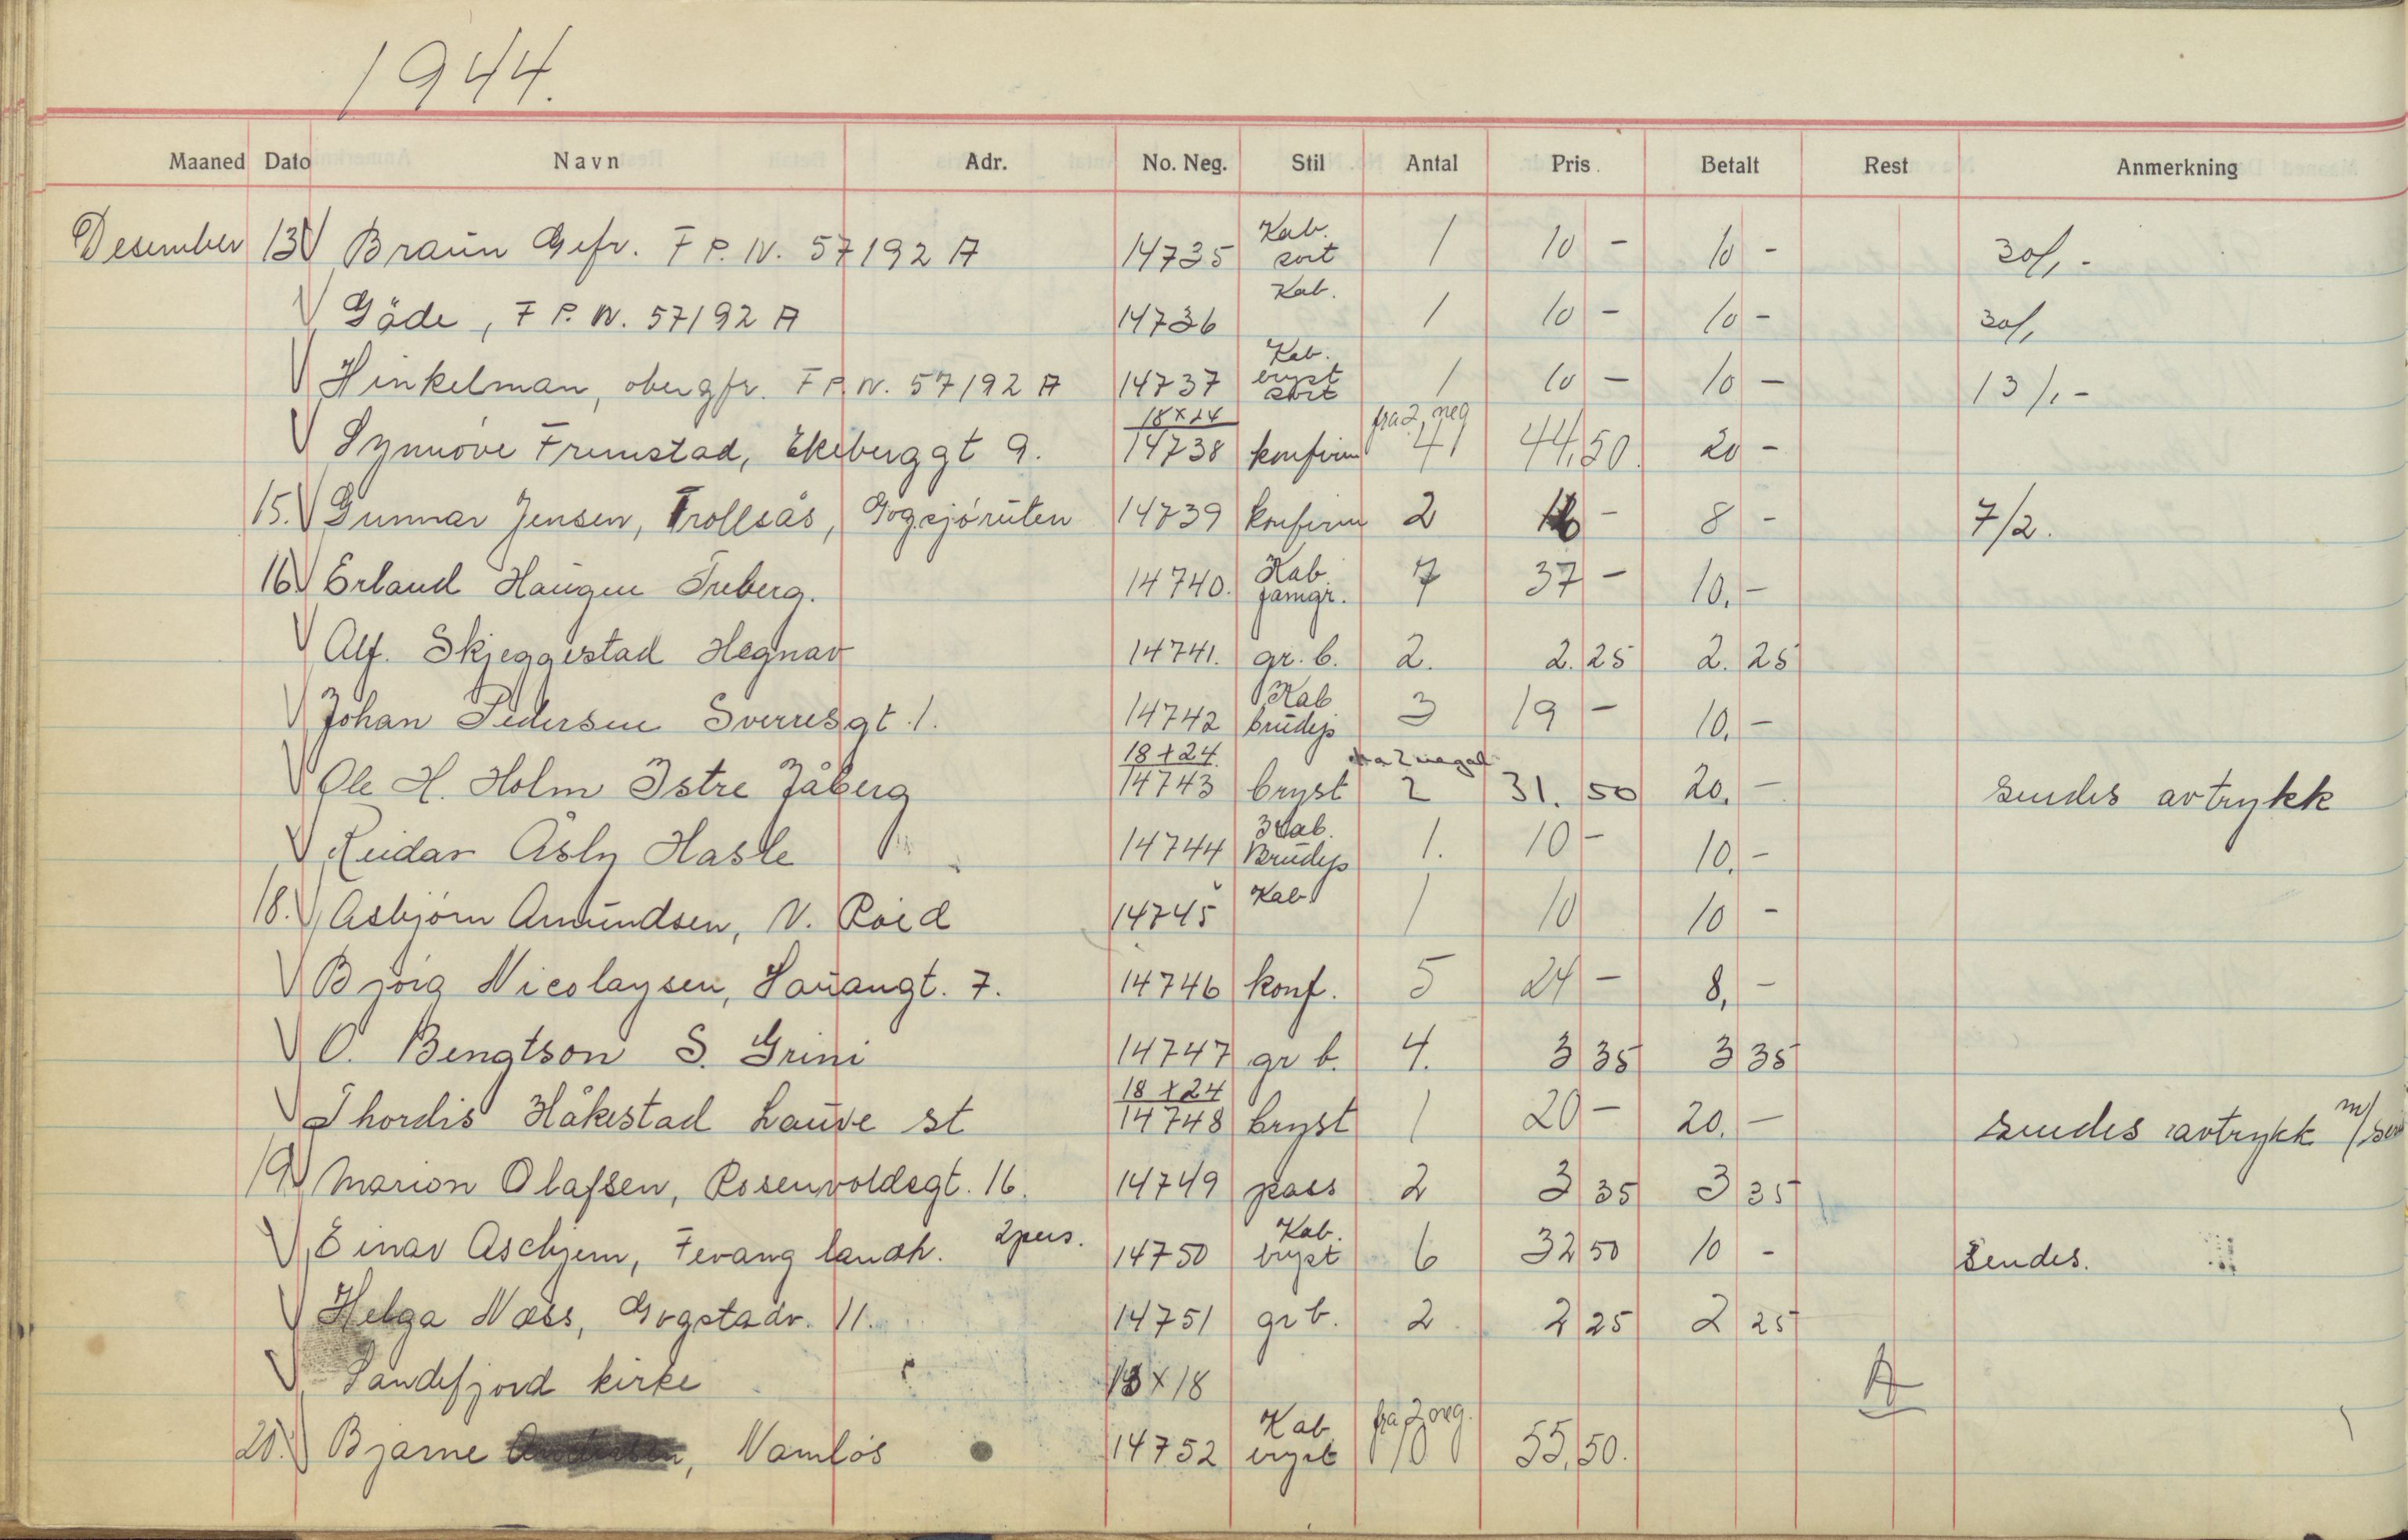 1944.
Maaned Dato Navn Adr. No. Neg. Stil Antal Pris. Betalt Rest Anmerkning
Desember 13 Braun Gefr. F P. N. 57192 A 14735 Kab. sort 1 10 - 10 - 30/1 -
Gäde, F P. N. 57192 A 14736 Kab. 1 10 - 10 - 30/1
Hinkelman, obergfr. F P. N. 57192 A 14737 Kab. bryst sort 1 10 - 10 - 13/1 -
Synnöve Fremstad, Ekeberggt 9. 18x24 14738 konfirm fra 2 neg 41 44,50. 20 -
15. Gunnar Jensen, Trollsås, Gogsjöruten 14739 konfirm 2 16 - 8 - 7/2.
16 Erland Haugen Freberg. 14740. Kab famgr. 7 37 - 10, -
Alf. Skjeggestad Hegnav 14741. gr. b. 2. 2.25 2.25
Johan Pedersen Sverresgt. 1. 14742 Kab brudep 3 19 - 10, -
Ole H. Holm Istre Jåberg 18x24 14743 bryst fra 2 negat 2 31.50 20, - sendes avtrykk
Reidar Åsly Hasle 14744 Kab. Brudep 1. 10 - 10, -
18. Asbjörn Amundsen, N. Röed 14745 Kab 1 10 10 -
Björg Nicolaysen, 7. 14746 konf. 5 24 - 8, -
O. Bengtson S. Grini 14747 gr b. 4. 3 35 3 35
Thordis Håkestad Lauve st 18x24 14748 bryst 1 20 - 20. - sendes avtrykk m/
19 Marion Olafsen, Rosenvoldsgt. 16. 14749 pass 2 3 35 3 35
Einar Aschjem, Fevang landh. 2pers. 14750 Kab. bryst 6 32 50 10 - Sendes.
Helga Næss, Gogstadv. 11. 14751 gr b. 2 2 25 2 25
Sandefjord kirke 13x18 A
20. Bjarne, Namlös 14752 Kab bryst fra 2 neg. 10 55,50.